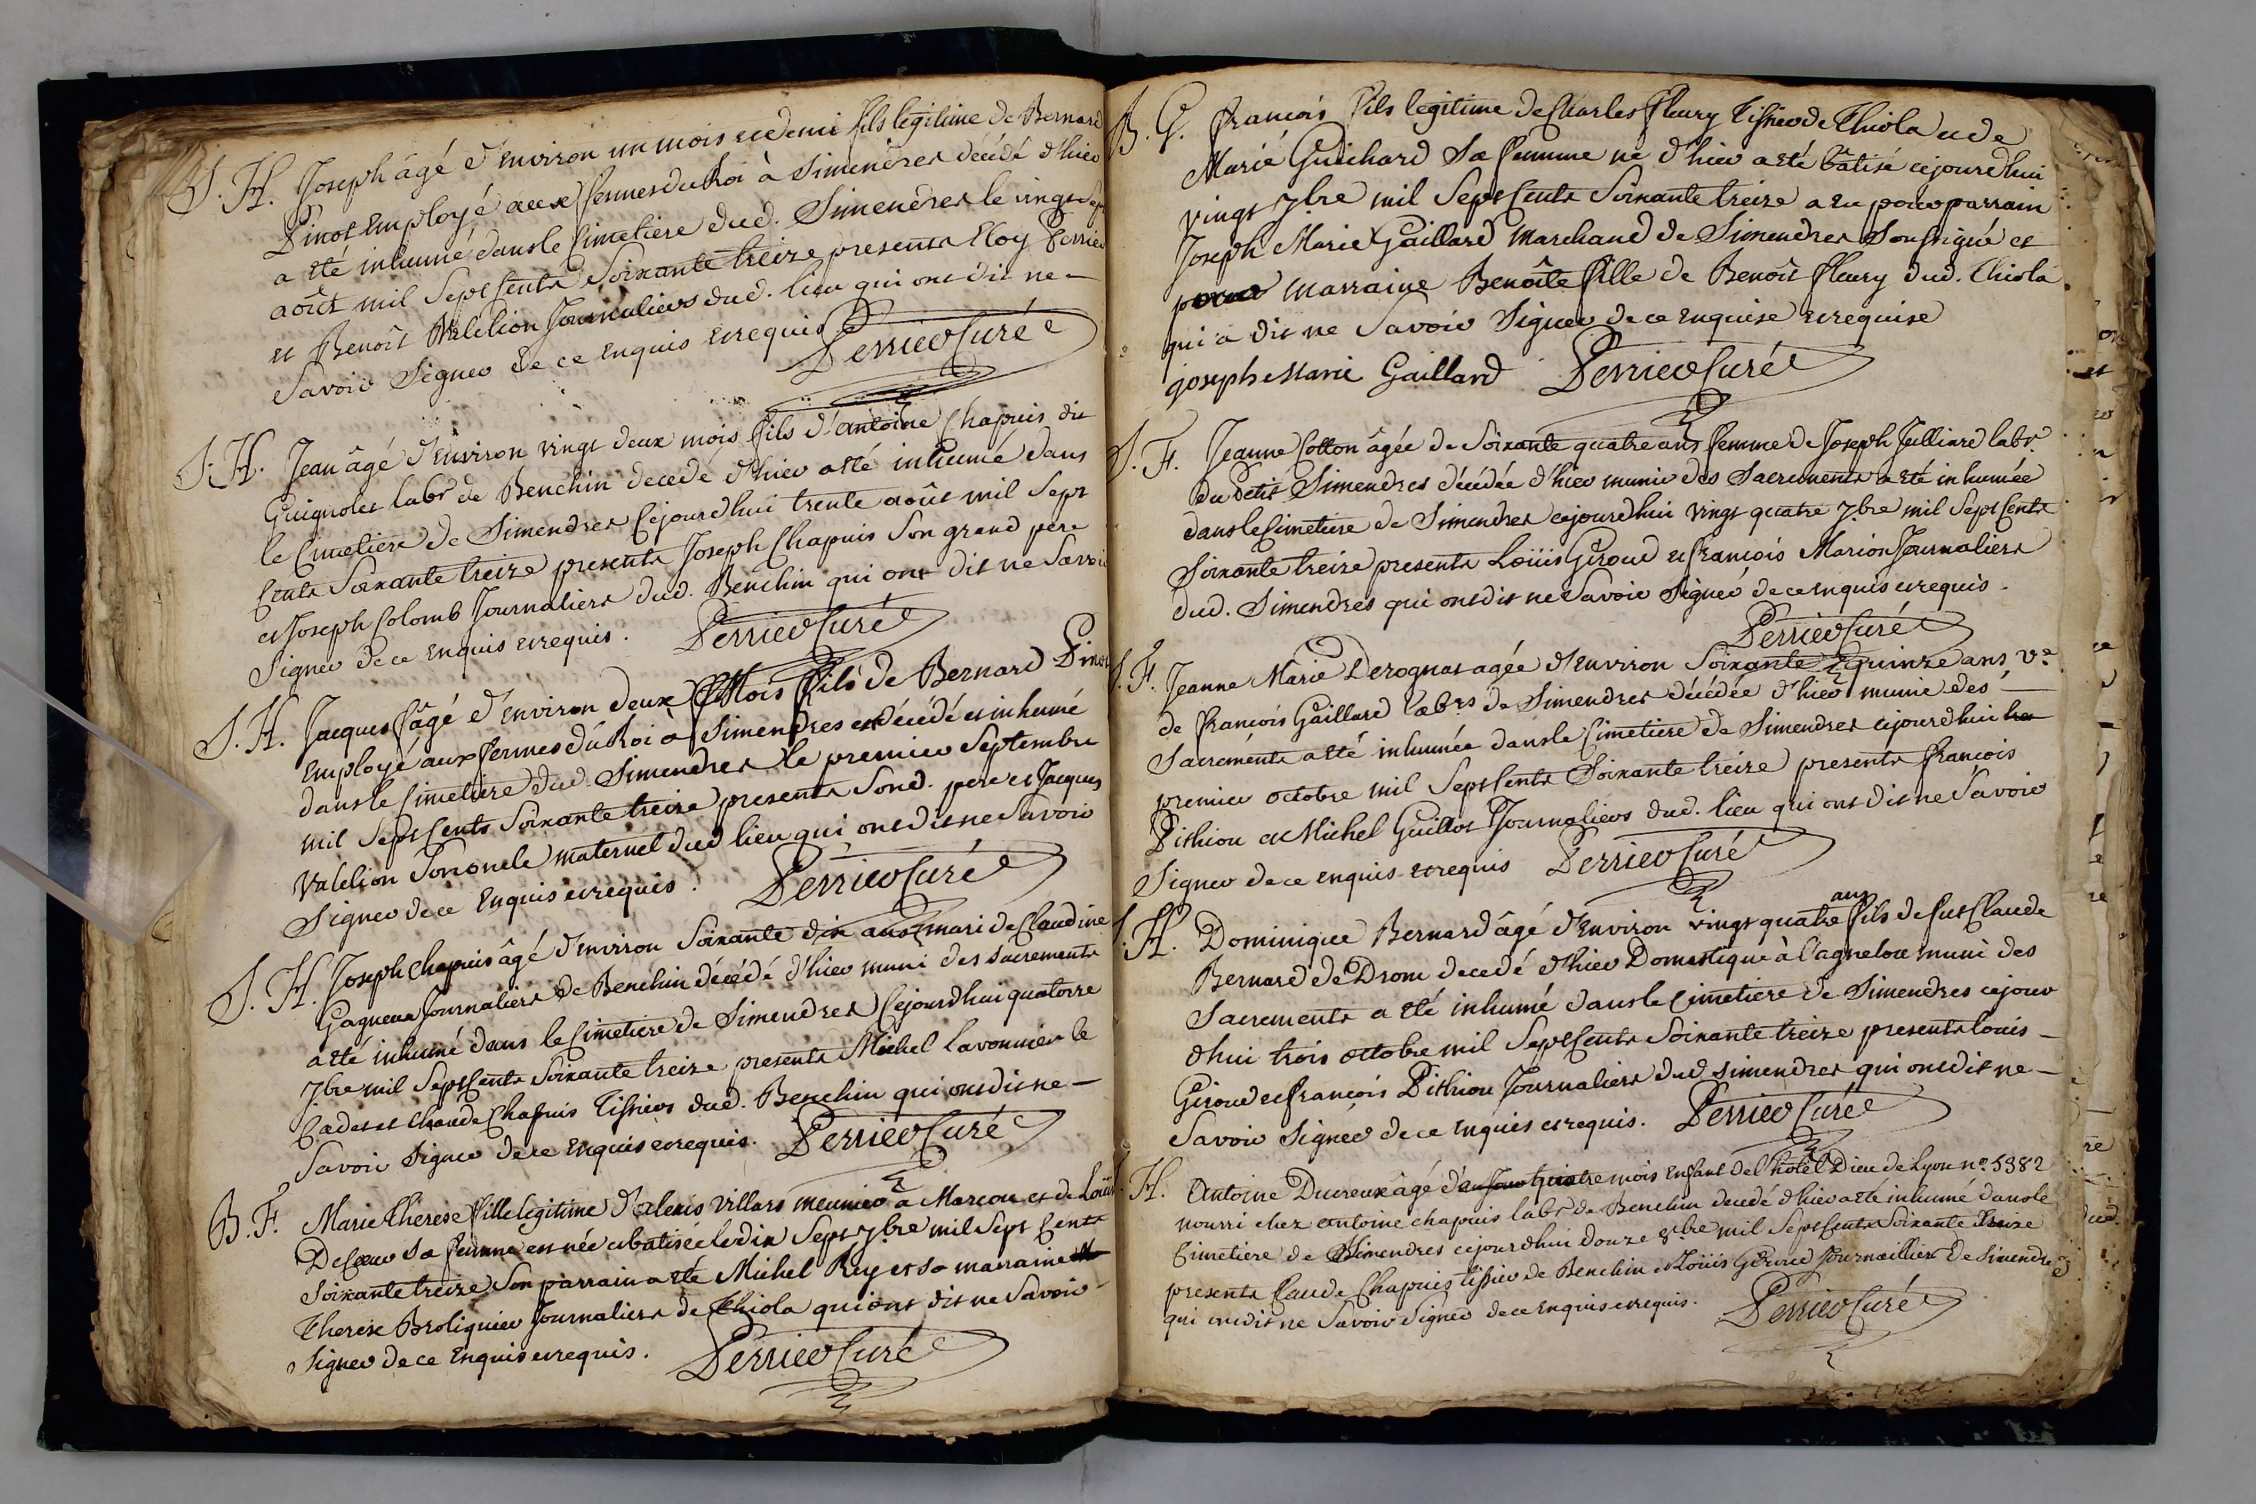 S. H. Joseph âgé d'environ un mois et demi fils legitime de Bernard
Pinot Employé aux fermes du Roi à Simendres décédé d'hier
a été inhumé dans le Cimetiere dud. Simendres le vingt sept
août mil sept cents soixante treize presents Eloy Perrier
et Benoît Valclion Journaliers dud. lieu qui ont dit ne
savoir signer de ce enquis et requis. Perrier Curé
S. H. Jean âgé d'environ vingt deux mois fils d'antoine Chapuis dit
Guignolet labr de Benchin decedé d'hier a été inhumé dans
le Cimetiere de Simendres Cejourdhui trente août mil sept
cents soixante treize presents Joseph Chapuis son grand pere
et Joseph Colomb Journaliers dud. Benchin qui ont dit ne savoir
signer de ce enquis et requis. Perrier Curé
S. H. Jacques âgé d'environ deux Mois fils de Bernard Pinot
Employé aux fermes du Roi à Simendres est décédé et inhumé
dans le Cimetiere dud. Simendres le premier Septembre
mil sept cents soixante treize presents sond. pere et Jacques
Valclion son oncle maternel dud lieu qui ont dit ne savoir
signer de ce enquis et requis. Perrier Curé
S. H. Joseph Chapuis âgé d'environ soixante dix ans mari de Claudine
Gagneux Journaliers de Benchin décédé d'hier muni des sacrements
a été inhumé dans le Cimetiere de Simendres Cejourdhui quatorze
7bre mil sept cents soixante treize presents Michel lavonnier le
Cadet et Claude Chapuis Tissiers dud. Benchin qui ont dit ne
savoir signer de ce enquis et requis. Perrier Curé
B. F. Marie Therese fille legitime d'alexis Villars meunier à Marcou et de Louise
Decoeur sa femme est née et batisée le dix sept 7bre mil sept cents
soixante treize son parrain a été Michel Rey et sa marraine
Therese Broliquier Journaliers de Thiola qui ont dit ne savoir
signer de ce enquis et requis. Perrier Curé
B. G. françois fils legitime de Charles fleury Tissier de Thiola et de
Marie Guichard sa femme né d'hier a été bâtisé cejourdhui
vingt 7bre mil sept cents soixante treize a eu pour parrain
Joseph Marie Gaillard Marchand de Simendres soussigné et
pour marraine Benoîte fille de Benoît fleury dud. Thiola
qui a dit ne savoir signer de ce enquise et requise
joseph Marie Gaillard Perrier Curé
S. F. Jeanne Cotton âgée de soixante quatre ans femme de Joseph Julliard labr.
du Petit Simendres décédée d'hier munie des Sacrements a été inhumée
dans le Cimetiere de Simendres cejourdhui vingt quatre 7bre mil sept cents
soixante treize presents Loüis Giroud et françois Marion Journaliers
dud. Simendres qui ont dit ne savoir signer de ce enquis et requis.
Perrier Curé
S. F. Jeanne Marie Derognat agée d'environ soixante quinze ans ve
de françois Gaillard labrs de Simendres décédée d'hier munie des
Sacréments a été inhumée dans le Cimetiere de Simendres cejourdhui
premier octobre mil sept cents soixante treize presents françois
Pithiou et Michel Guillot Journaliers dud. lieu qui ont dit ne savoir
signer de ce enquis et requis Perrier Curé
S. H. Dominique Bernard âgé d'environ vingt quatre ans fils de fut Claude
Bernard de Drom decedé d'hier Domestique à l'agnelou muni des
Sacrements a été inhumé dans le Cimetiere de Simendres cejour
dhui trois octobre mil sept cents soixante treize presents louis
Giroud et françois Pithiou Journaliers dud. simendres qui ont dit ne
savoir signer de ce enquis et requis. Perrier Curé
H. Antoine Ducreux âgé quatre mois enfant de l'hôtel Dieu de Lyon no. 5382
nourri chez antoine chapuis labr de Benchin decedé d'hier a été inhumé dans le
Cimetiere de Simendres cejourdhui douze 8bre mil sept cents soixante treize
presents Claude Chapuis tissier de Benchin et Loüis Giroud Journaillier de Simendres
qui ont dit ne savoir signer de ce enquis et requis. Perrier Curé